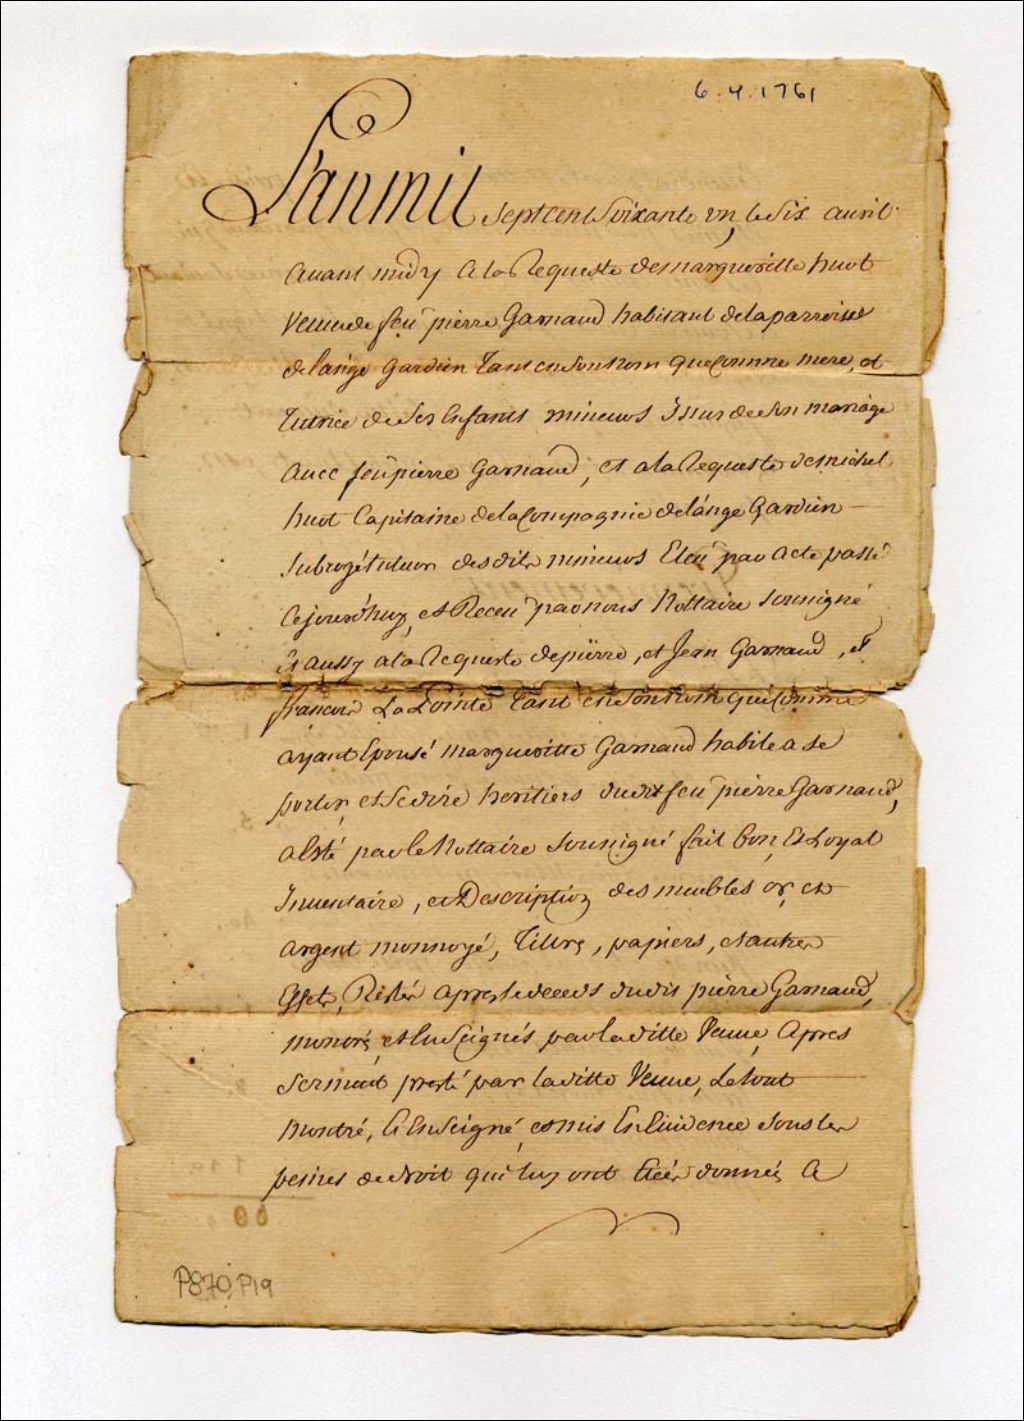 6.4.1761
L'anmil septcent Soixante un, le Six avril
avant midy a la Requeste de margueritte huot
veuve de feu pierre Garnaud habitant de la parroisse
de lange Gardien tant en son nom que Comme mere, et
tutrice de Ses Enfants mineurs Issus de son mariage
avec feu pierre Garnaud, et a la Requeste de michel
huot Capitaine de la Compagnie de l'ange Gardien
Subrogé tuteur desdits mineurs Eleu par acte passé
Cejourd'huy, et Receu par nous Nottaire Sousigné
Et aussy a la Requeste de pierre, et Jean Garnaud, et
francois La Pointe tant en son nom que Comme
ayant Epousé margueritte Garnaud habile a se
porter et se dire heritiers dudit feu pierre Garnaud,
a Esté par le Nottaire Sousigné fait bon, Et Loyal
Inventaire, et Description des meubles or, et
argent monnoyé, titres, papiers, et autres
Effets, Restés apres le deceds dudit pierre Garnaud,
montrés, et Enseignés par laditte Veuve, apres
Serment presté par laditte Veuve, Le tout
montré, Et Enseigné, et mis En Evidence Sous les
peines de droit qui luy ont Etées donnés a
P870, P19